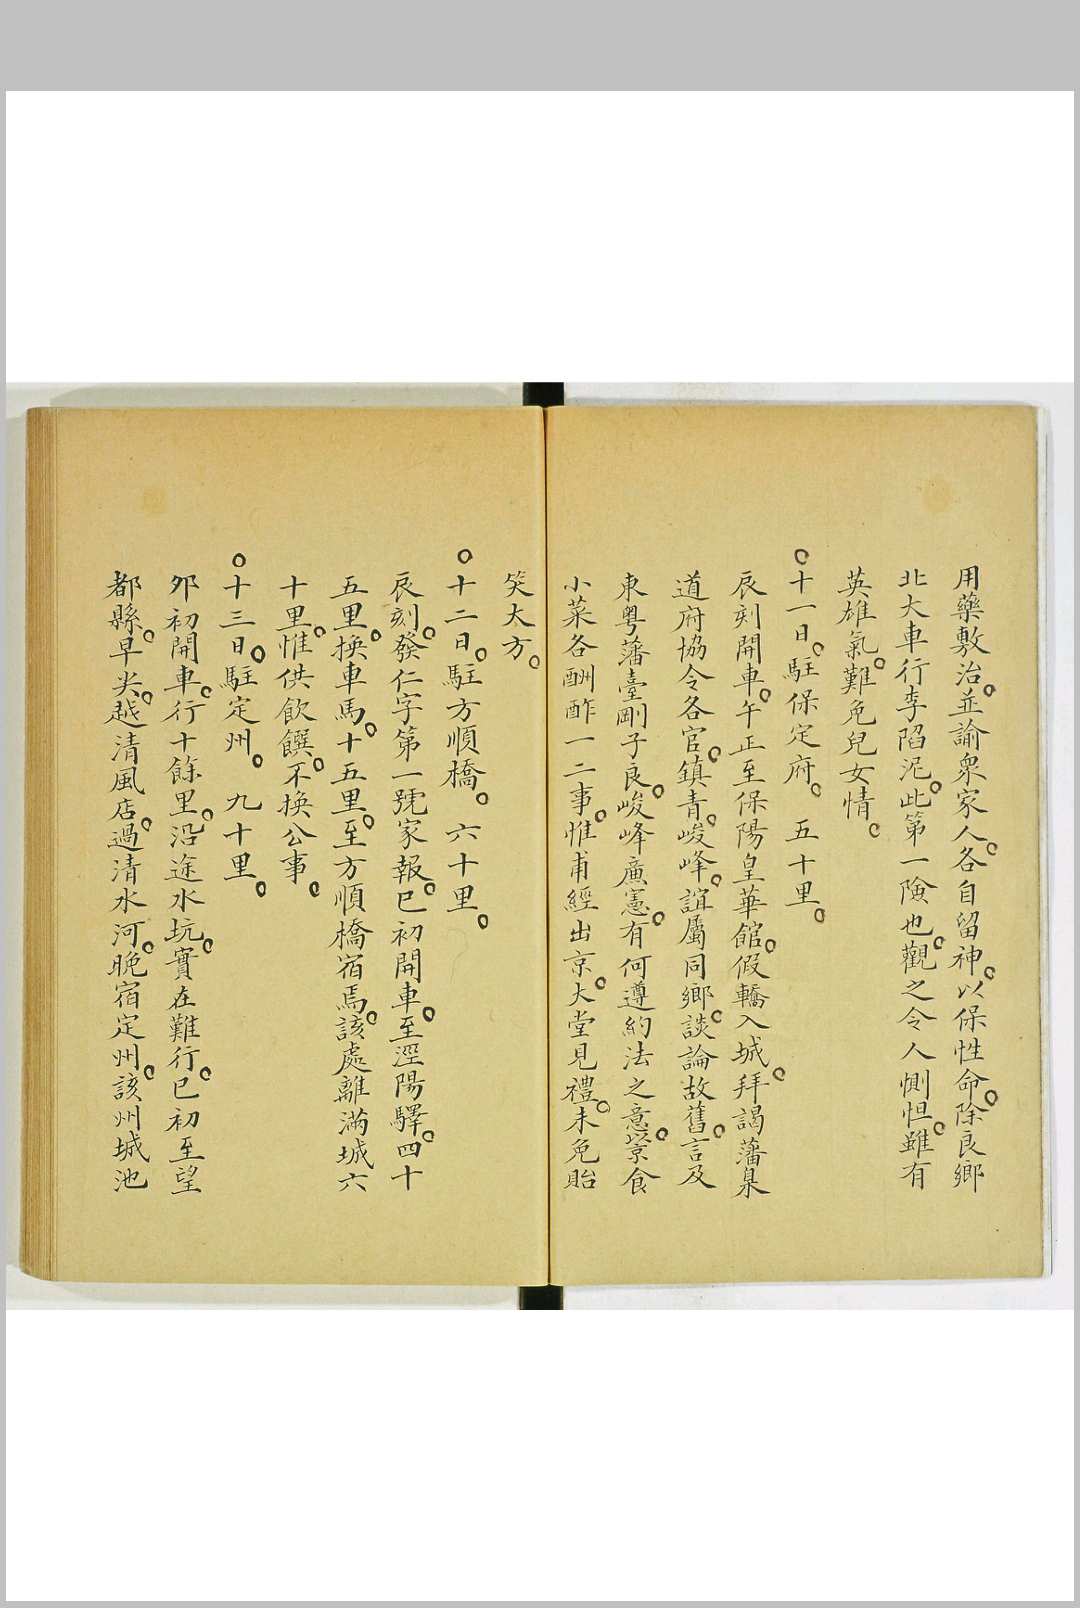 用藥敷治。並諭衆家人。各自留神。以保性命。除良鄉
北大車行李陷泥。此第一險也。觀之令人惻怛。雖有
英雄氣。難免兒女情。
○十一日。駐保定府。 五十里。
辰刻開車。午正至保陽皇華館。假轎入城。拜謁藩臬
道府協令各官。鎮青。峻峰。誼屬同鄉。談論故舊。言及
東粵藩臺剛子良。峻峰廉憲。有何遵約法之意。崇食
小菜各酬酢一二事。惟甫經出京。大堂見禮。未免貽
笑大方。
○十二日。駐方順橋。 六十里。
辰刻。發仁字第一號家報。巳初開車。至涇陽驛。四十
五里。換車馬。十五里。至方順橋宿焉。該處離滿城六
十里。惟供飲饌。不換公事。
○十三日。駐定州。 九十里。
夘初開車。行十餘里。沿途水坑。實在難行。巳初至望
都縣。早尖。越清風店。過清水河。晚宿定州。該州城池